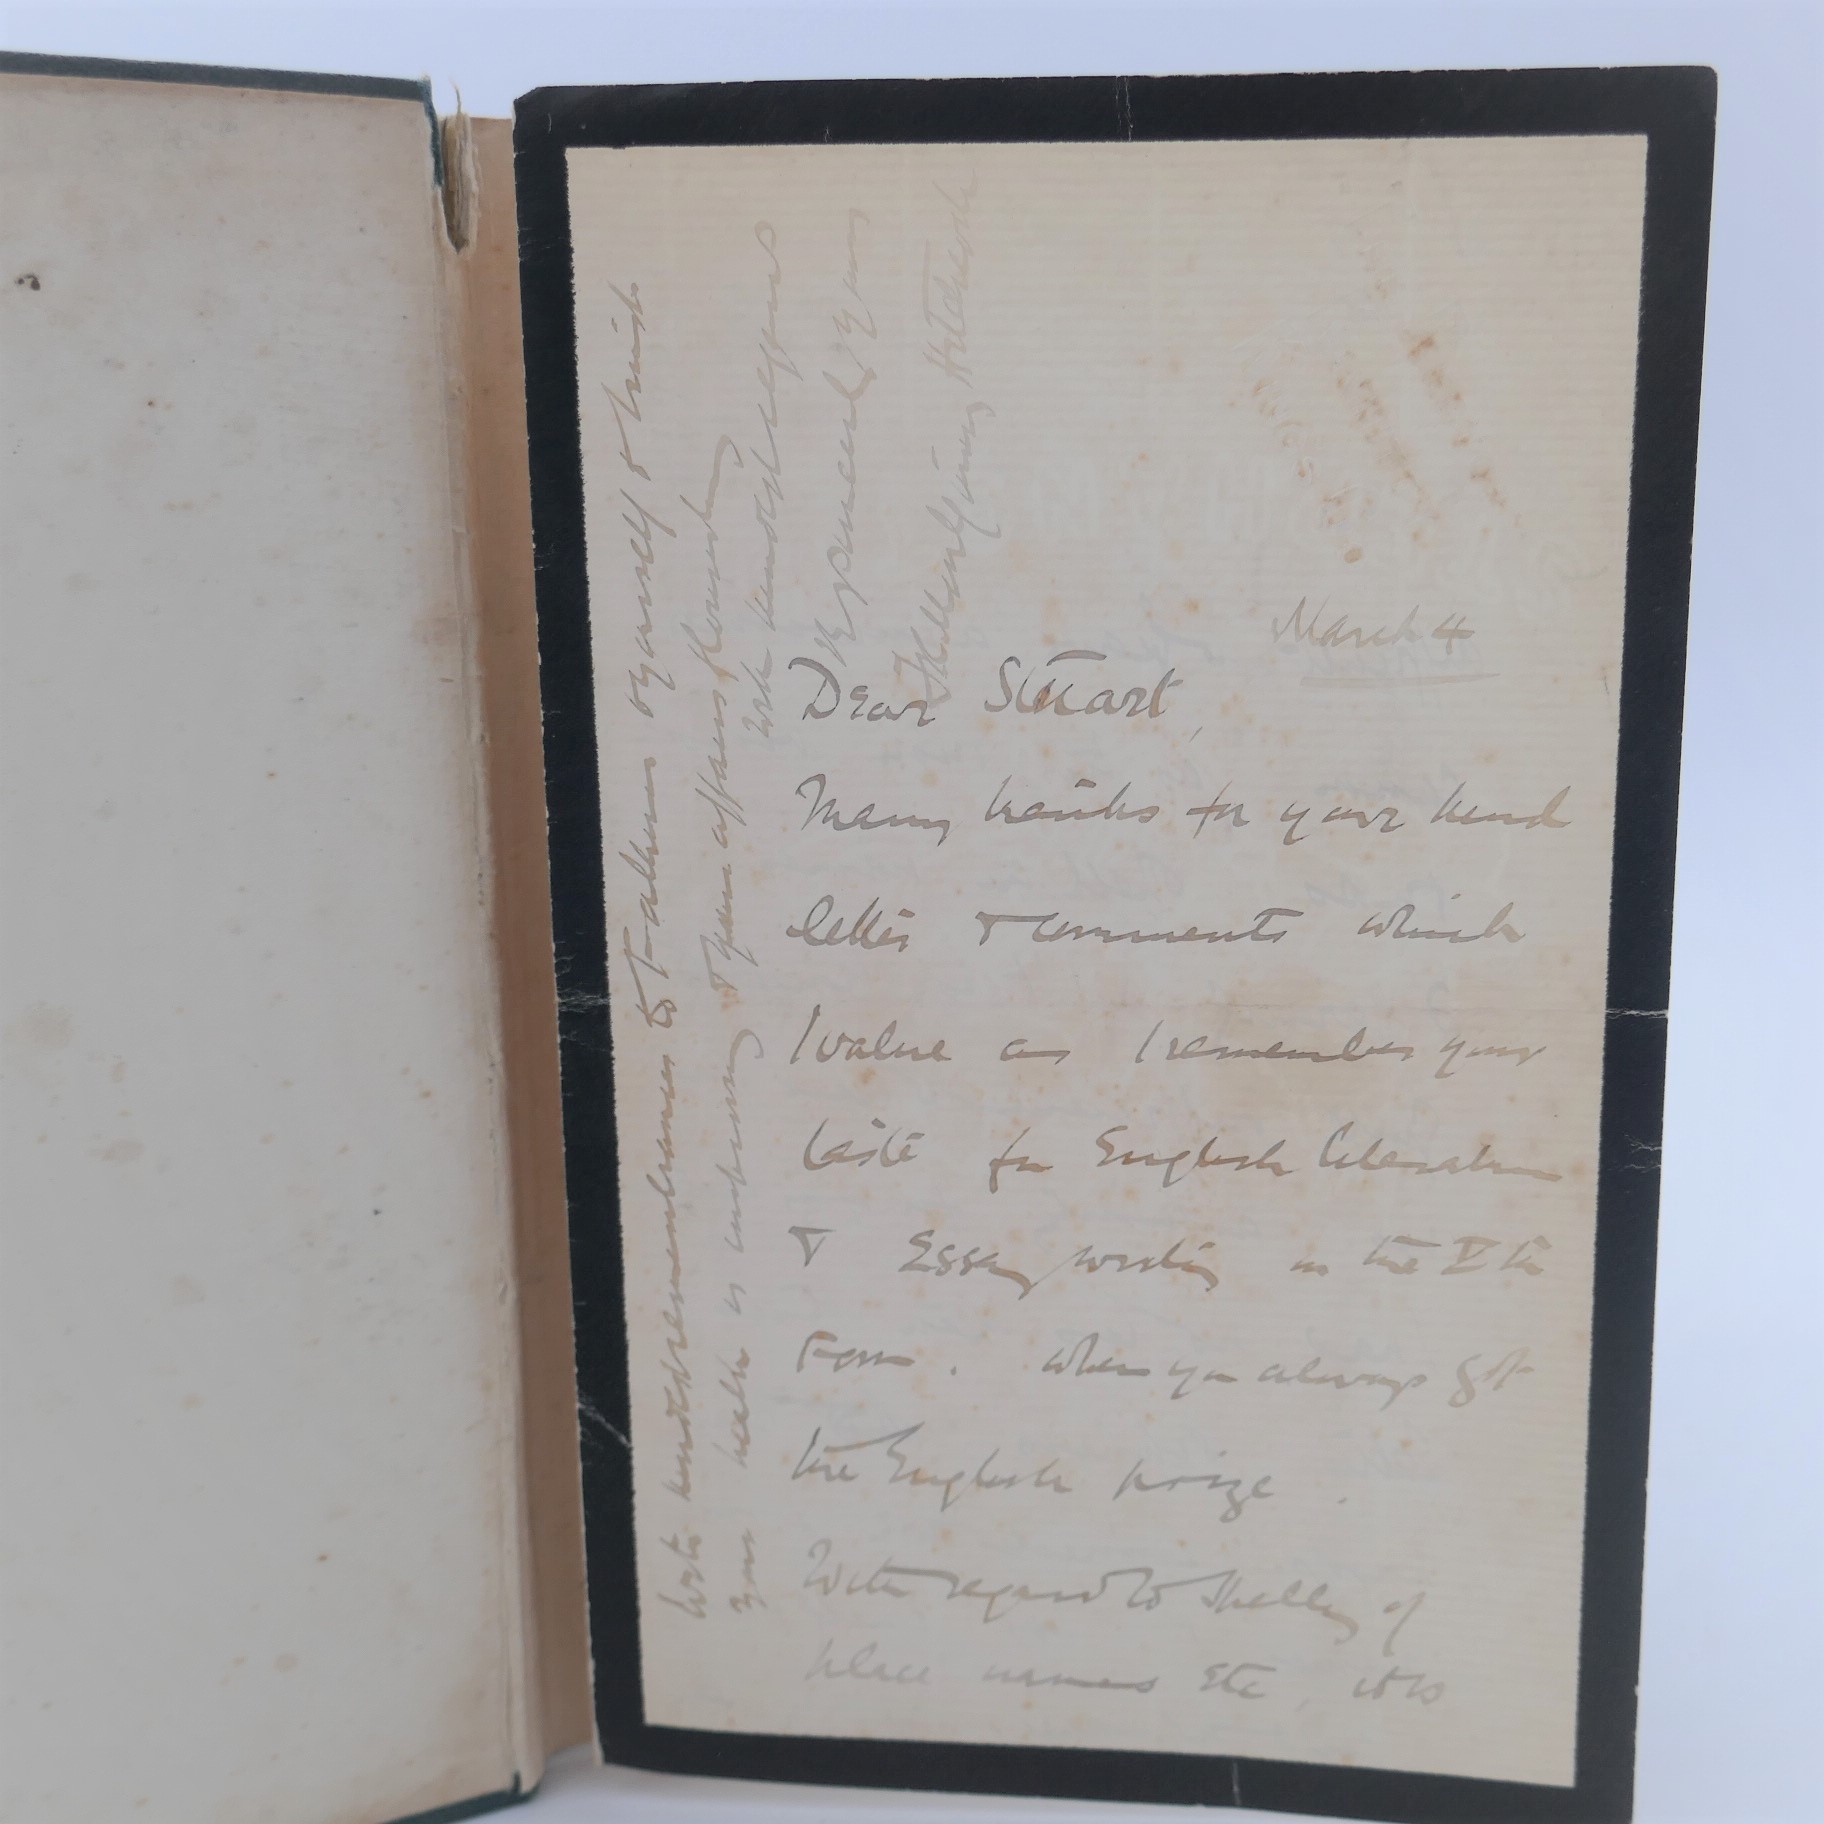 March 4
Dear Stuart,
Many thanks for your kind
letter & comments which
I value as I remember your
taste for English literature
& Essay writing in the Vth
Form. When you always got
the English prize.
With regard to spelling of
place names etc, it is
With kindest remembrances to Fullness of yourself & trust
your health is improving & your affairs flourishing
With kindest regards
Yours
Hutchinson